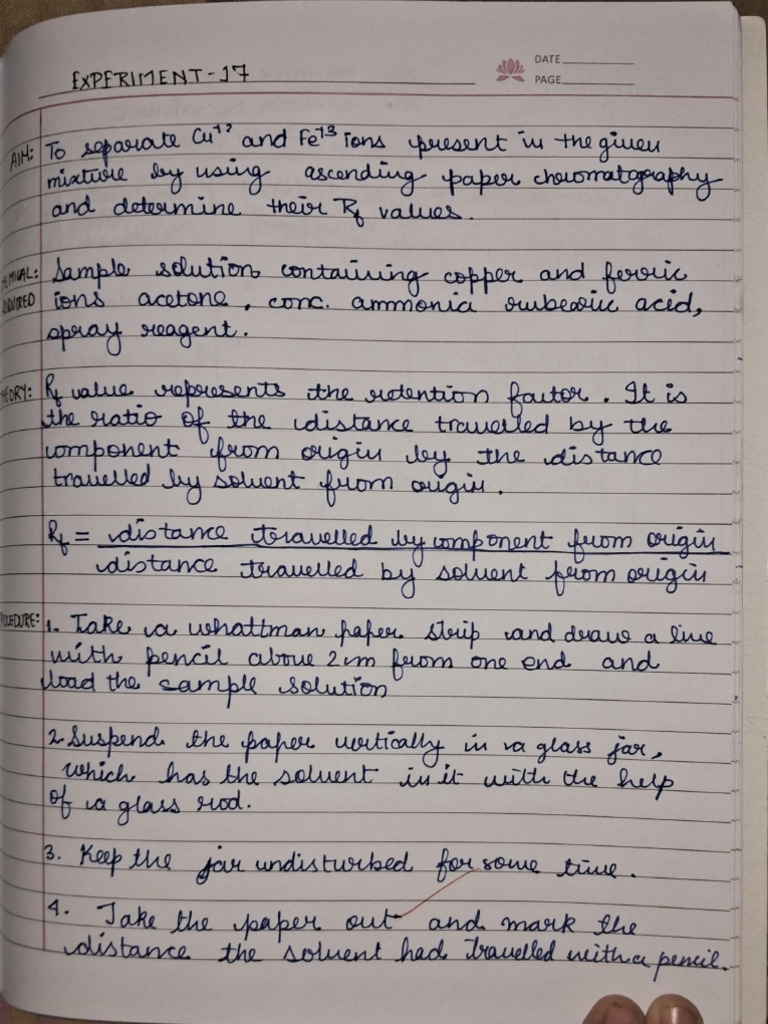 EXPERIMENT-17
DATE
PAGE
AIM: To separate Cu+2 and Fe+3 ions present in the given
mixture by using ascending paper chromatography
and determine their Rf values.
Sample solution containing copper and ferric
ions acetone, conc. ammonia rubeoic acid,
spray reagent.
Rf value represents the retention factor. It is
the ratio of the distance travelled by the
component from origin by the distance
travelled by solvent from origin.
Rf = distance travelled by component from origin
distance travelled by solvent from origin
1. Take a whattman paper strip and draw a line
with pencil above 2cm from one end and
load the sample solution
2 Suspend the paper vertically in a glass jar,
which has the solvent in it with the help
of a glass rod.
3. Keep the jar undisturbed for some time.
4. Take the paper out and mark the
distance the solvent had travelled with a pencil.